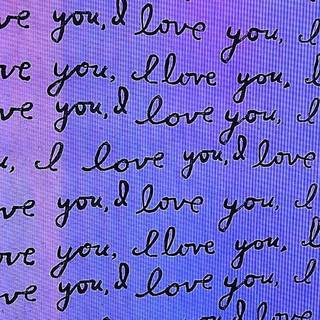 ve you, I love you, I
ve you, I love you, I
ve you, I love you, I
u, I love you, I love
ve you, I love you, I
ove you, I love you, I
ve you, I love you, I
you, I love